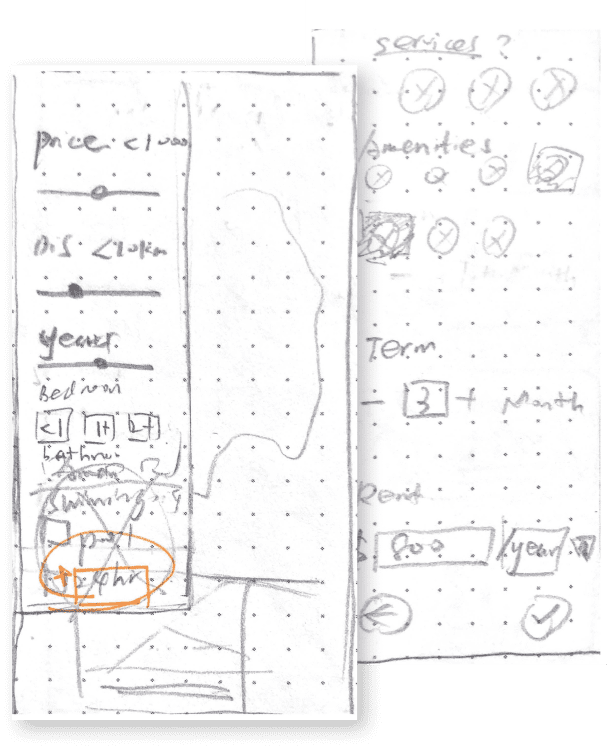 price <1000
Dis <10km
year
Bedroom
<1 1+ 2+
bathro
Swimming
pool
24hr
services ?
Amenities
Term
- 3 + Month
Rent
$ 800 /year